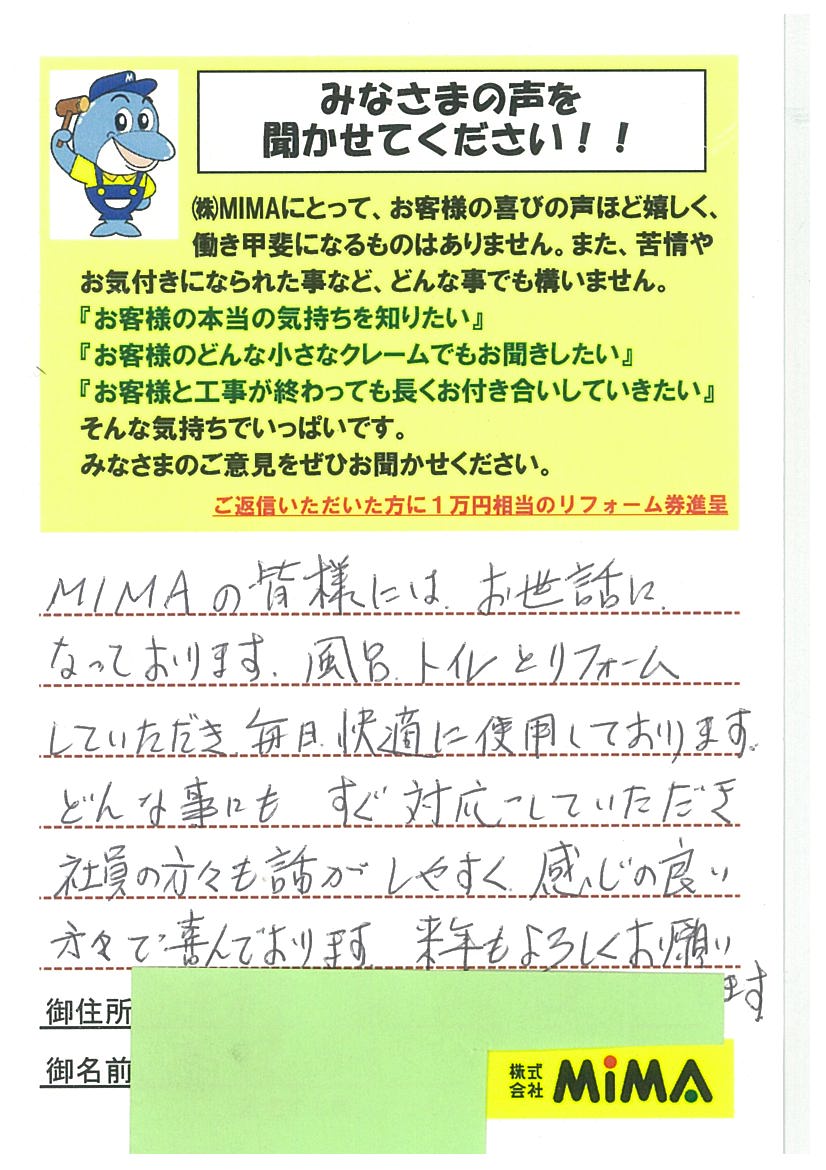 みなさまの声を
聞かせてください！！
㈱MIMAにとって、お客様の喜びの声ほど嬉しく、
働き甲斐になるものはありません。また、苦情や
お気付きになられた事など、どんな事でも構いません。
『お客様の本当の気持ちを知りたい』
『お客様のどんな小さなクレームでもお聞きしたい』
『お客様と工事が終わっても長くお付き合いしていきたい』
そんな気持ちでいっぱいです。
みなさまのご意見をぜひお聞かせください。
ご返信いただいた方に１万円相当のリフォーム券進呈
MIMAの皆様には、お世話に
なっております。風呂、トイレとリフォーム
していただき、毎日、快適に使用しております。
どんな事にも すぐ対応していただき
社員の方々も話がしやすく、感じの良い
方々で喜んでおります。来年もよろしくお願い
ます
御住所
御名前
株式会社 MiMA